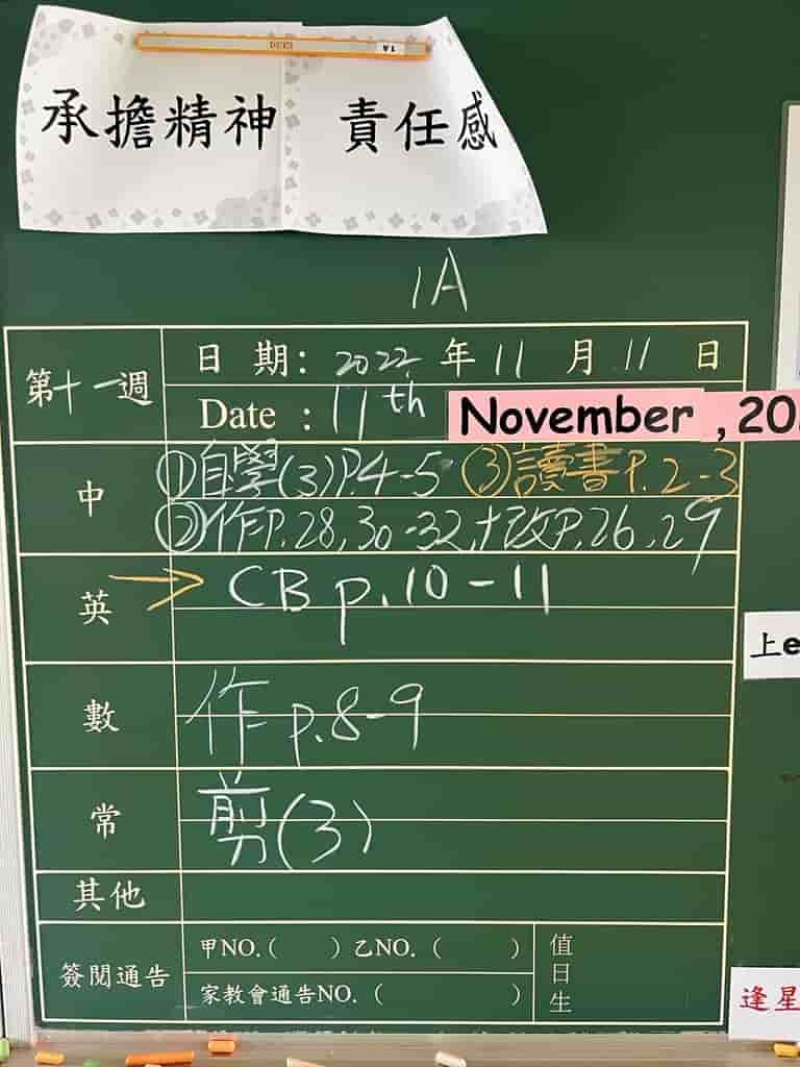 承擔精神 責任感
1A
第十一週 日 期: 2022 年 11 月 11 日
Date : 11th November , 20
中 ①自學(3)P.4-5 ③讀書P.2-3
②作P.28,30-32,+改P.26,29
英 → CB p.10-11
數 作 p.8-9
常 剪(3)
其他
簽閱通告 甲NO.( ) 乙NO. ( )
家教會通告NO. ( )
值日生
上e
逢星